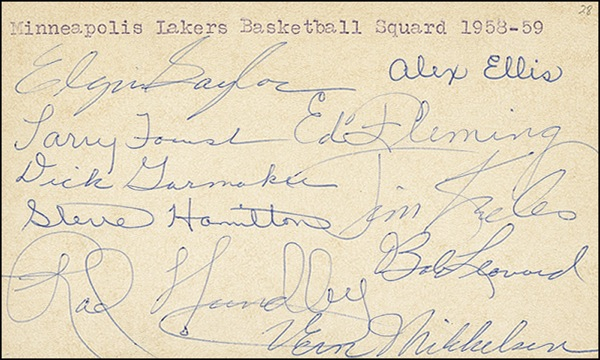 28
Minneapolis Lakers Basketball Squard 1958-59
Elgin Baylor
Alex Ellis
Larry Foust
Ed Fleming
Dick Garmaker
Jim Krebs
Steve Hamilton
Bob Leonard
Rod Hundley
Vern Mikkelsen